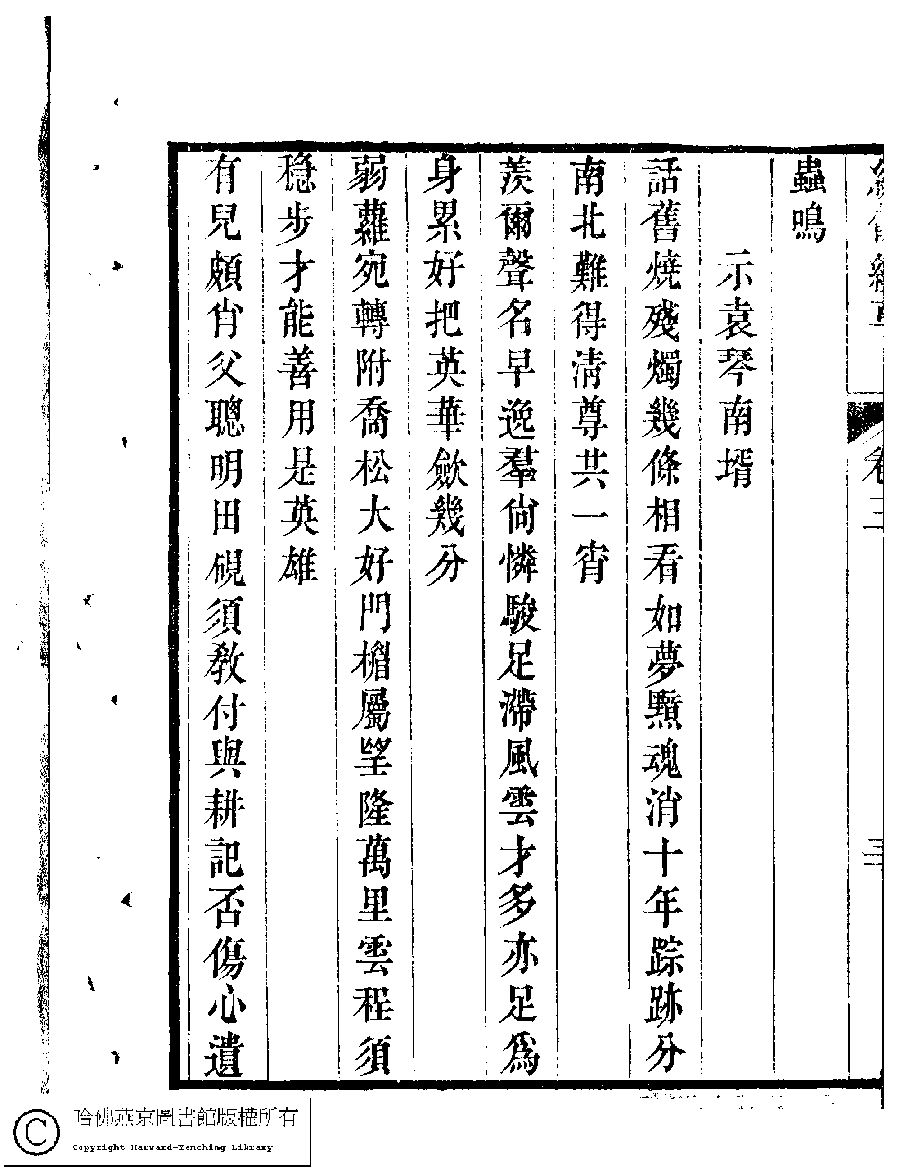 卷三
三
蟲鳴
示袁琴南壻
話舊燒殘燭幾條相看如夢黯魂消十年踪跡分
南北難得淸尊共一宵
羨爾聲名早逸羣尙憐駿足滯風雲才多亦足爲
身累好把英華歛幾分
弱蘿宛轉附喬松大好門楣屬望隆萬里雲程須
穩步才能善用是英雄
有兒頗肖父聰明田硯須敎付與耕記否傷心遺
哈佛燕京圖書館版權所有
Copyright Harvard-Yenching Library